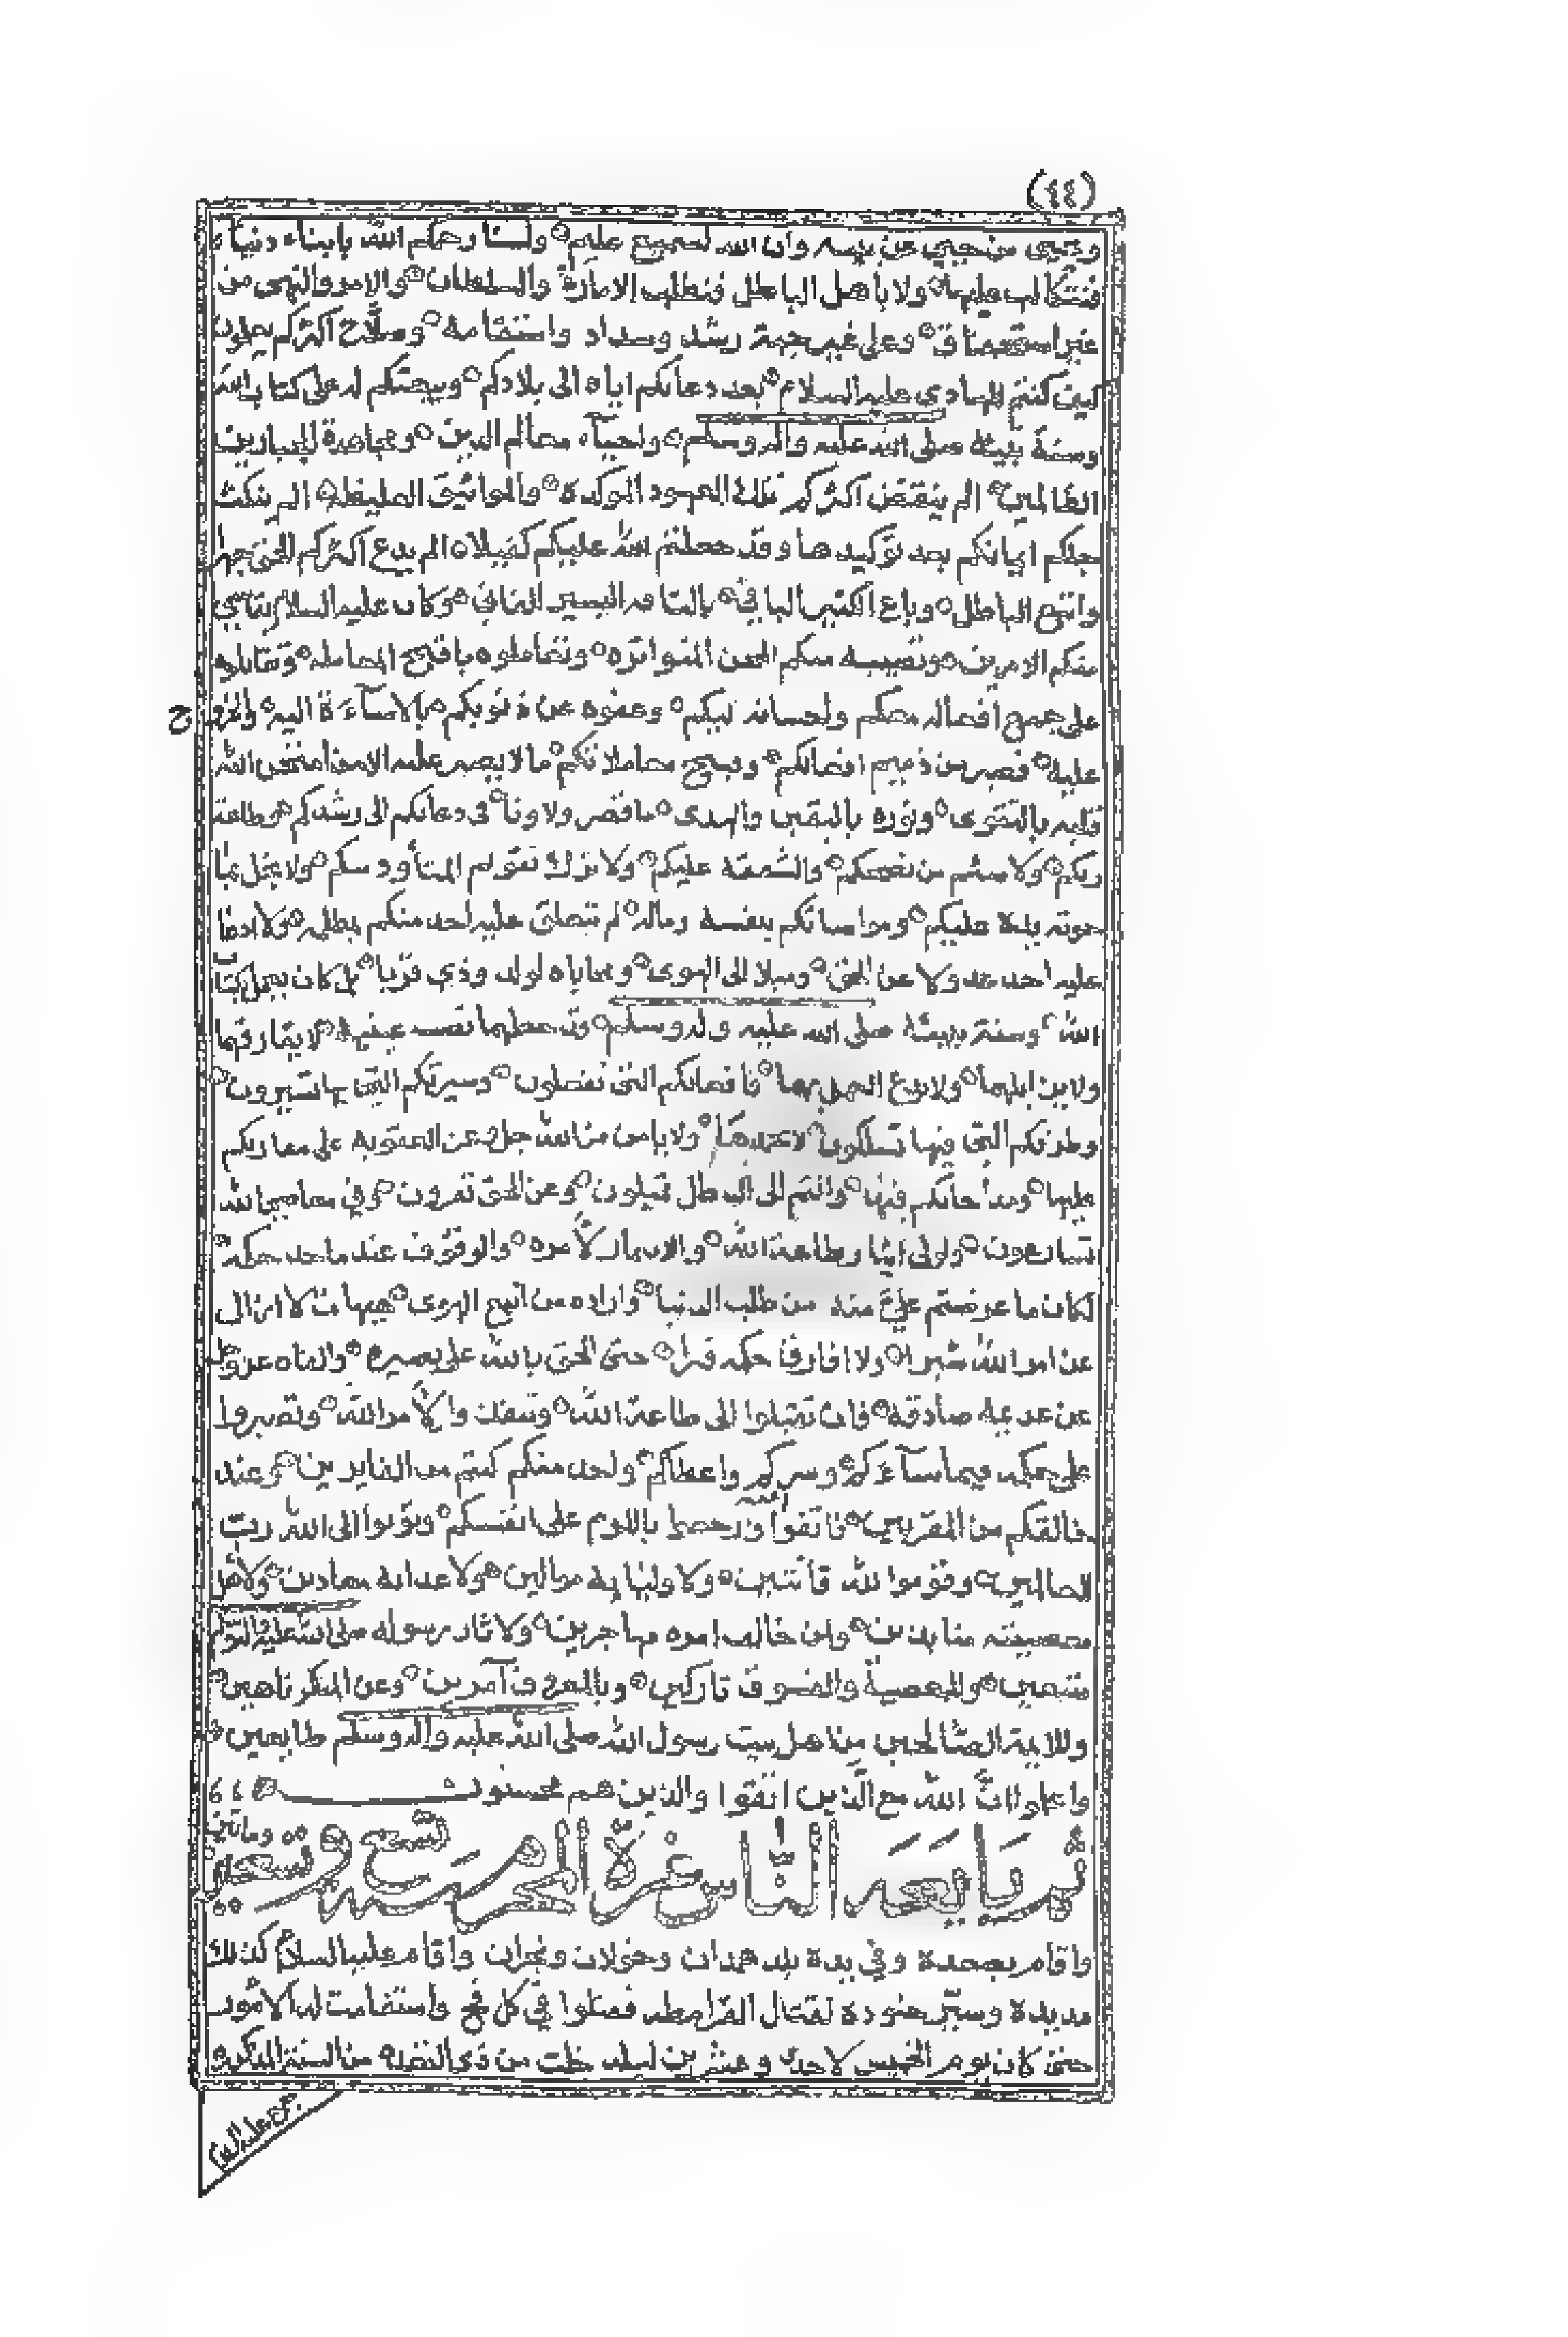 (٤٤)
ويحيى من حيي عن بينه وان الله لسميع عليم ولسنا رحمكم الله بابناء دنيا
فنتكالب عليها ولا باهل الباطل فنطلب الامارة والسلطان والامر والنهي من
غير استحقاق وعلى غير جهة رشد وسداد واستقامة وصلاح اكثركم
كنتم للهادي عليه السلام بعد دعائكم اياه الى بلادكم وبيعتكم له على كتاب الله
وسنة نبيه صلى الله عليه واله وسلم واحيآء معالم الدين ومجاهدة الجبارين
الظالمين الم ينقض اكثركم تلك العهود الموكدة والمواثيق الغليظه الم ينكث
جلكم ايمانكم بعد توكيدها وقد جعلتم الله عليكم كفيلا الم يدع اكثركم الحق
واتبع الباطل وباع الكثير الباقي بالتافه اليسير الفاني وكان عليه السلام يقاسي
منكم الامرين وتصيبه منكم المحن المتواتره وتعاملوه باقبح المعامله وتقابلوه
على جميع افعاله معكم واحسانه اليكم وعفوه عن ذنوبكم بالاسآءة اليه
ح
عليه فصبر من ذميم افعالكم وقبيح معاملاتكم ما لا يصبر عليه الا من امتحن الله
قلبه بالتقوى ونوره باليقين والهدى ما قصر ولا ونا في دعائكم الى رشدكم وطاعة
ربكم ولا سئم من نصحكم والشفقه عليكم ولا ترك تقويم المتأود منكم ولا بخل بما
حوته يداه عليكم ومواساتكم بنفسه وماله لم يتعلق عليه احد منكم بظلم ولا ادعا
عليه احد عدولا عن الحق وميلا الى الهوى ومحاباه لولد وذي قربا بل كان يحملكم
الله وسنة نبيه صلى الله عليه وله وسلم وقد جعلهما نصب عينيه لا يفارقهما
ولا يزايلهما ولا يدع العمل بهما فافعالكم التي تفعلون وسيرتكم التي بها تسيرون
وطرقكم التي فيها تسلكون لا يحمدها ولا يامن من الله جل وعز العقوبة على مقاربكم
عليها ومداخلتكم فيها وانتم الى الباطل تميلون وعن الحق تفرون وفي معاصي الله
تسارعون ولولى ايثار طاعة الله والايتمار لأمره والوقوف عند ما حد حكمه
لكان ما عرضتم علي منه من طلب الدنيا واراده من اتبع الهوى هيهات لا ازال
عن امر الله شبرا ولا افارق حكمه فترا حتى الحق بالله على بصيره والقاه عز وجل
عن عزيمة صادقه فان تقبلوا الى طاعة الله وتنقادوا لأمر الله وتصبروا
على حكمه فيما سآءكم وسركم واعطاكم واخذ منكم كنتم من الفايزين وعند
خالقكم من المقربين فاتقوا وارجعوا باللوم على انفسكم وتوبوا الى الله رب
العالمين وقوموا لله قانتين ولاوليا يه موالين ولاعدائه معادين ولاهل
معصيته منابذين ولمن خالف امره مهاجرين ولاثار رسوله صلى الله عليه واله وسلم
متبعين وللمعصية والفسوق تاركين وبالمعروف آمرين وعن المنكر ناهين
وللايمة الصالحين من اهل بيت رسول الله صلى الله عليه واله وسلم طايعين
واعلموا ان الله مع الذين اتقوا والذين هم محسنون
ثم بايعه الناس غرة المحرم سنة تسع وتسعين ومائتين
واقام بصعدة وفي يده بلد همدان وخولان ونجران واقام عليه السلام كذلك
مديدة وسير جنوده لقتال القرامطه فقتلوا في كل فج واستقامت له الامور
حتى كان يوم الخميس لاحدى وعشرين ليله خلت من ذي القعده من السنة المذكوره